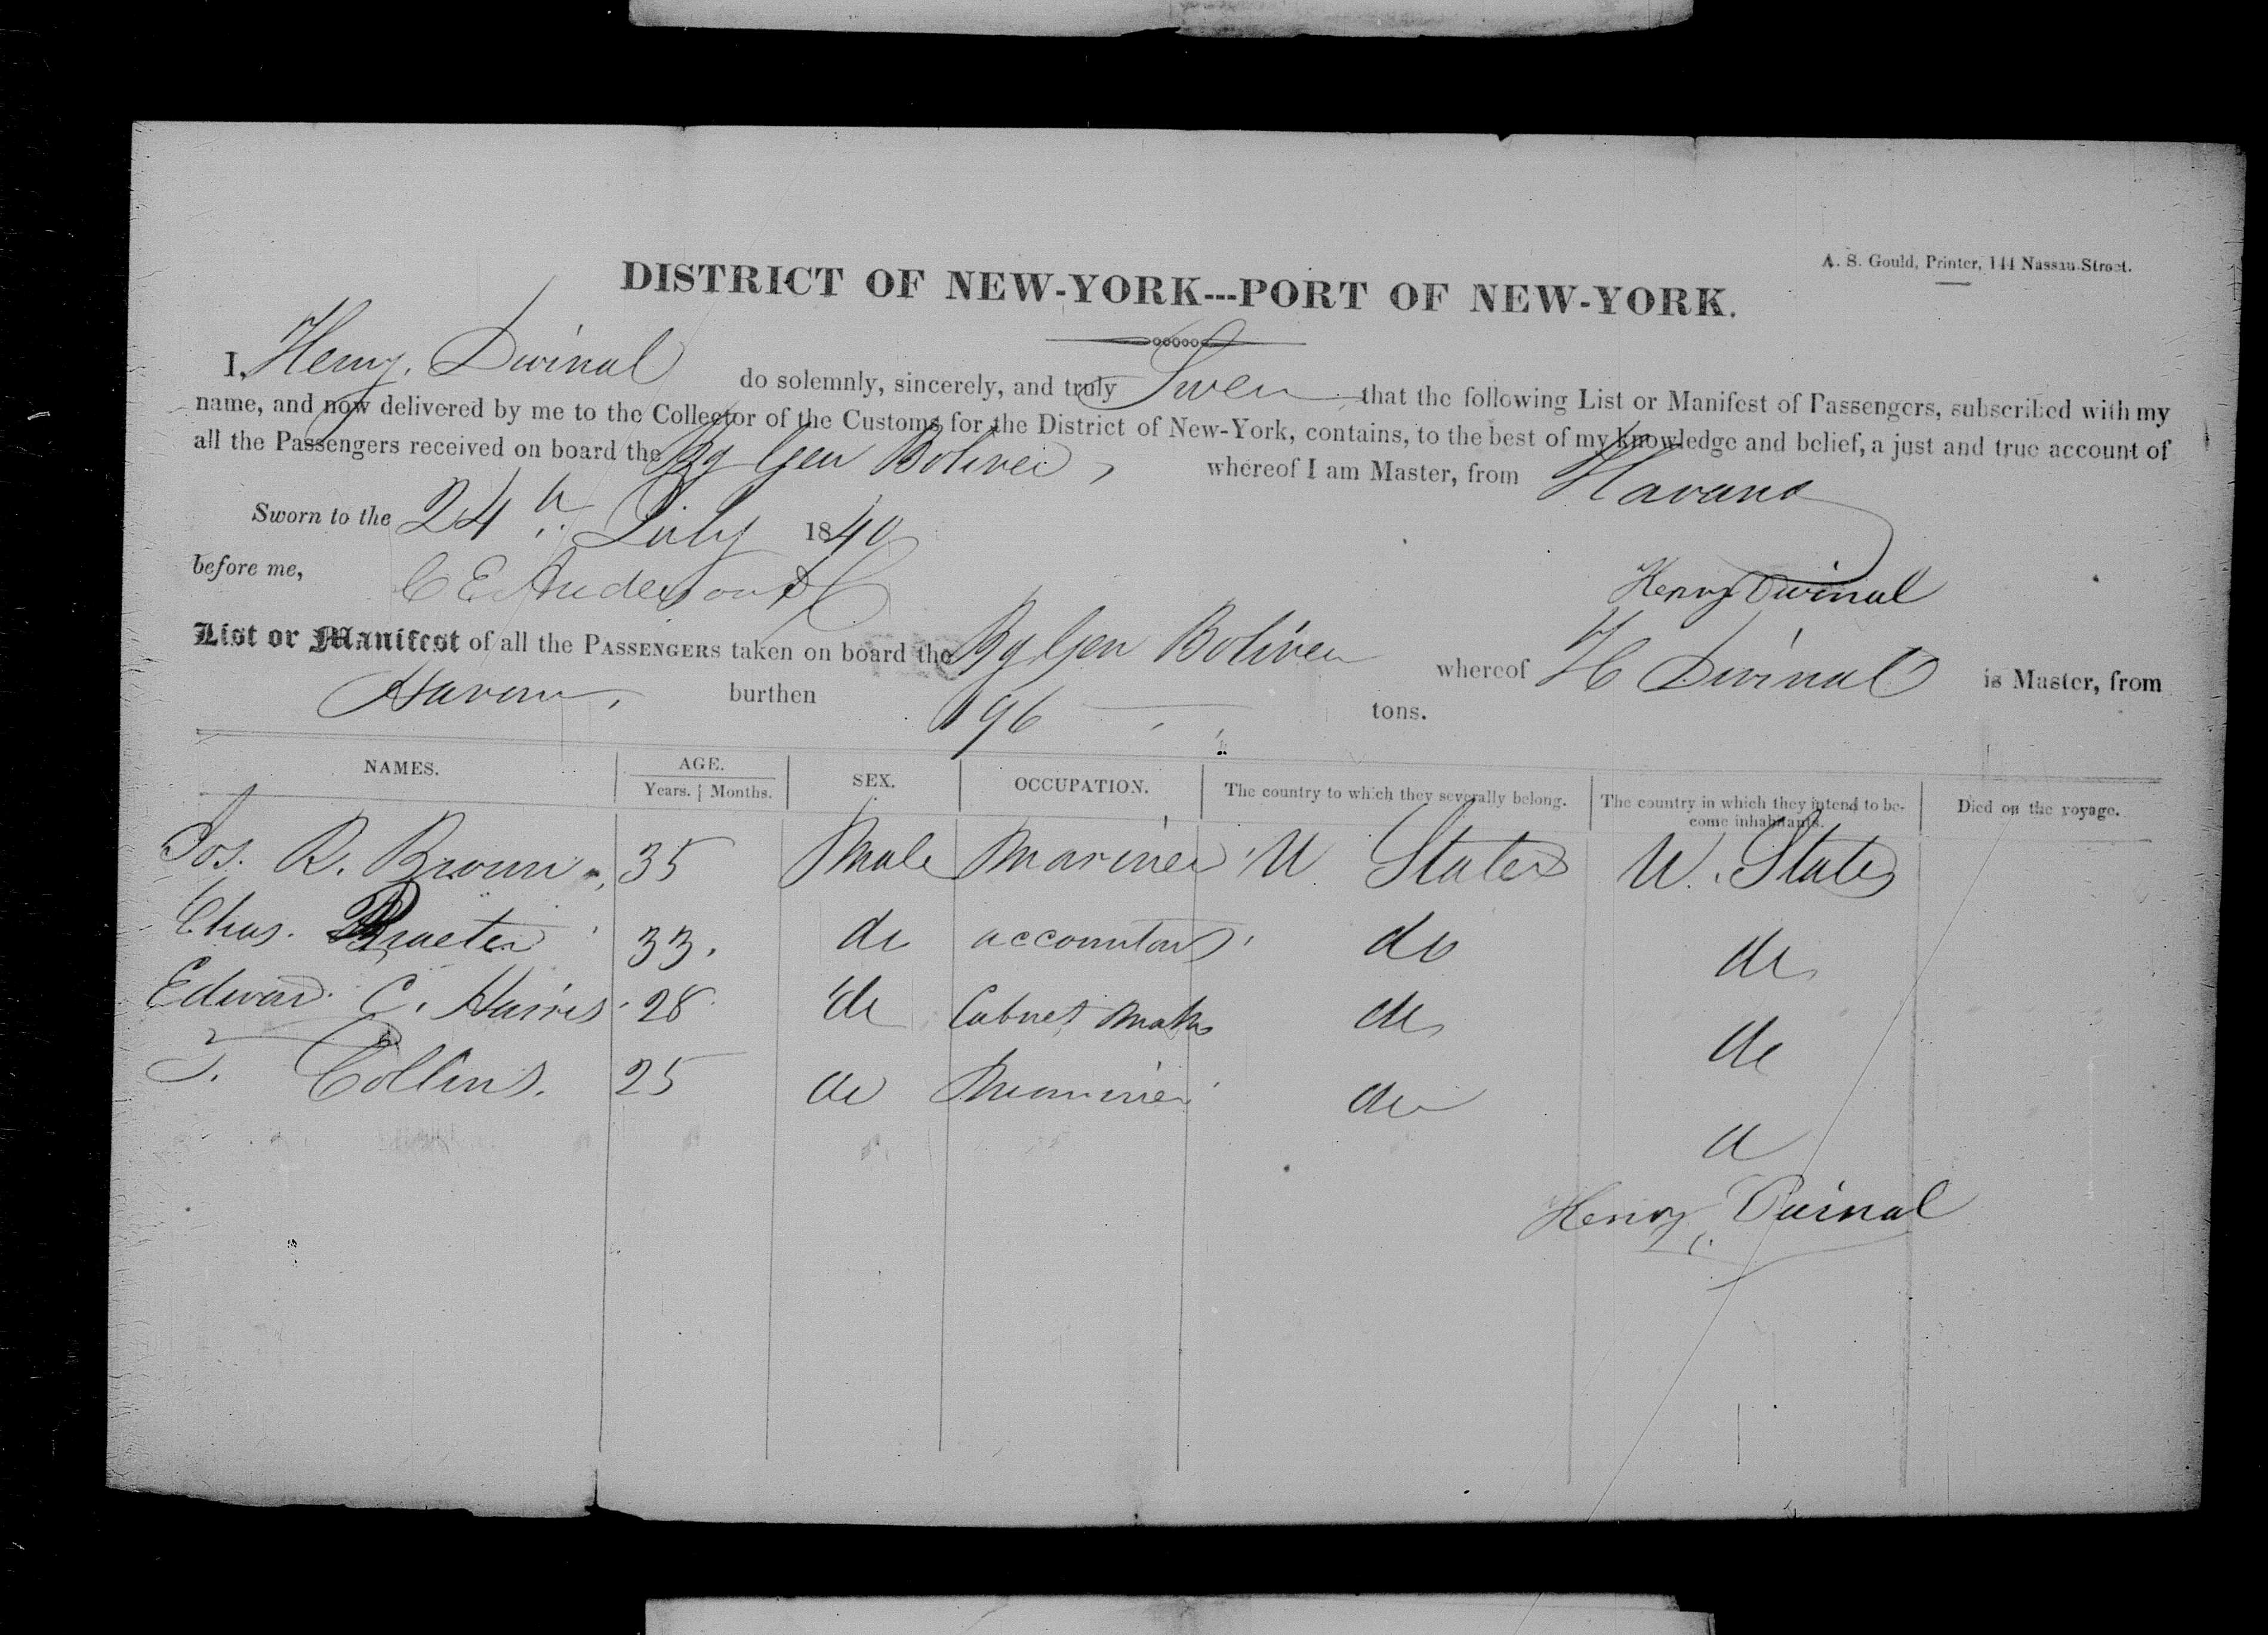 A. S. Gould, Printer, 144 Nassau-Street.
DISTRICT OF NEW-YORK---PORT OF NEW-YORK.
I, Henry Dwinal do solemnly, sincerely, and truly Swear that the following List or Manifest of Passengers, subscribed with my
name, and now delivered by me to the Collector of the Customs for the District of New-York, contains, to the best of my knowledge and belief, a just and true account of
all the Passengers received on board the Bg Gen Boliver, whereof I am Master, from Havana
Sworn to the 24th July 1840
before me, C E Anderson
Henry Dwinal
List or Manifest of all the PASSENGERS taken on board the Bg Gen Boliver whereof H Dwinal is Master, from
Havana, burthen 196 tons.
NAMES. AGE. SEX. OCCUPATION. The country to which they severally belong. The country in which they intend to be-
come inhabitants. Died on the voyage.
Years. Months.
Jos. R. Brown 35 Male Mariner U States U. States
Chas. 33. do accountant do do
Edward C. Harris 28 do Cabnet Maker do do
T. Collins. 25 do Mariner do do
Henry Dwinal